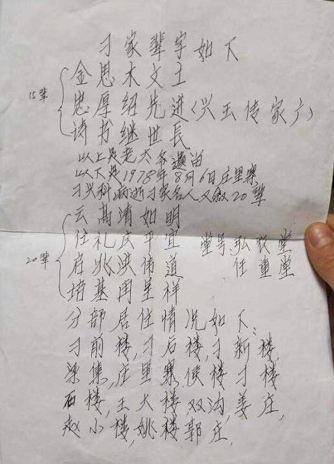 刁家辈字如下
15辈
金思木文土
忠厚绍先进(兴玉传家广)
诗书继世長
以上是老大爷遗留
以下是1978年8月6日庄里寨
刁兴科 刁家名人又叙20辈
20辈
云高清如明
住礼庆平宜 堂号:弘敬堂
府兆洪诗道 任重堂
培基用呈样
分部居住情况如下:
刁前楼,刁后楼,刁新楼,
梁集,庄里寨,侯楼刁楼
石楼,王大楼双沟,姜庄,
赵小楼,姚楼郭庄,